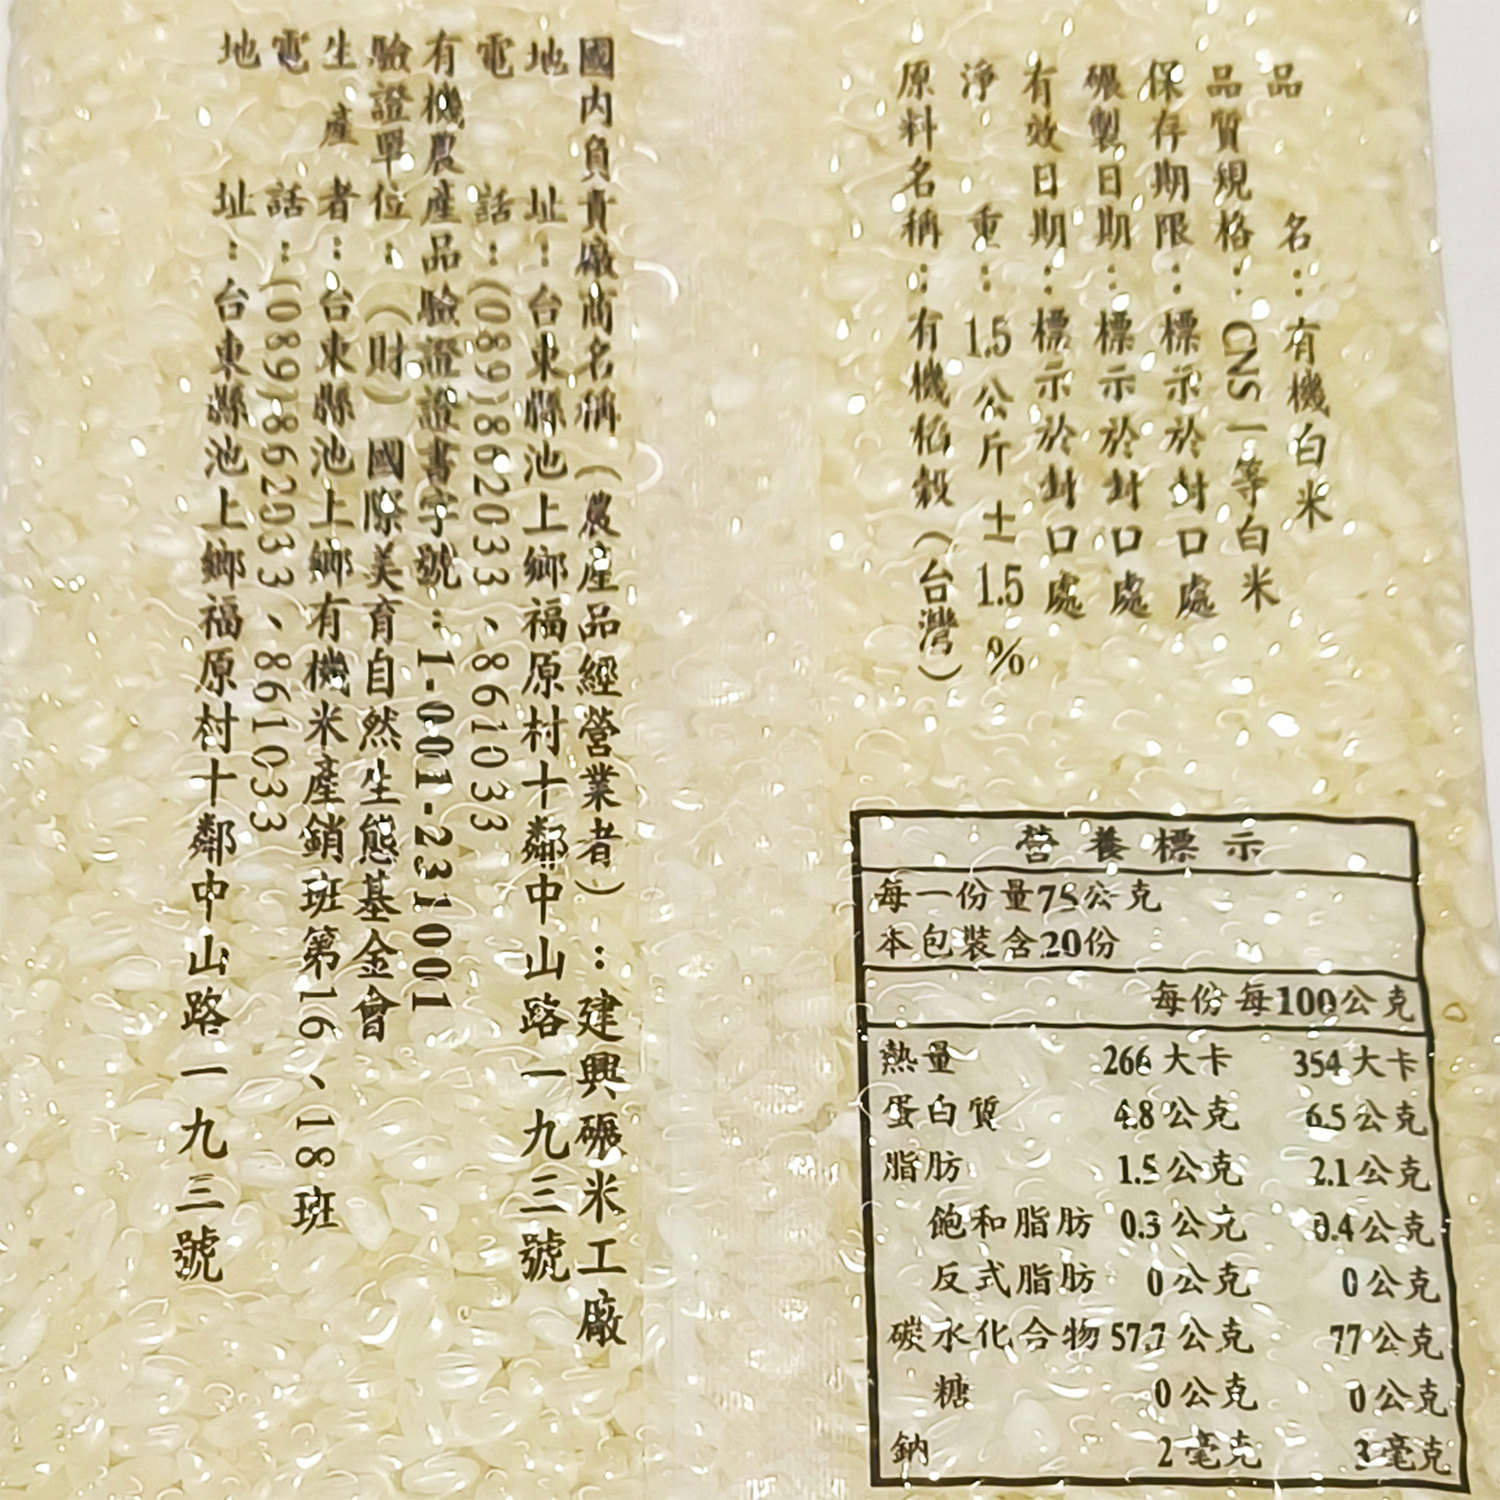 品名：有機白米
品質規格：CNS一等白米
保存期限：標示於封口處
碾製日期：標示於封口處
有效日期：標示於封口處
淨重：1.5公斤±1.5%
原料名稱：有機稻穀(台灣)
營養標示
每一份量75公克
本包裝含20份
每份 每100公克
熱量 266大卡 354大卡
蛋白質 4.8公克 6.5公克
脂肪 1.5公克 2.1公克
飽和脂肪 0.3公克 0.4公克
反式脂肪 0公克 0公克
碳水化合物 57.7公克 77公克
糖 0公克 0公克
鈉 2毫克 3毫克
國內負責廠商名稱(農產品經營業者)：建興碾米工廠
地址：台東縣池上鄉福原村十鄰中山路一九三號
電話：(089)862033、861033
有機農產品驗證證書字號：1-001-231001
驗證單位：(財)國際美育自然生態基金會
生產者：台東縣池上鄉有機米產銷班第16、18班
電話：(089)862033、861033
地址：台東縣池上鄉福原村十鄰中山路一九三號